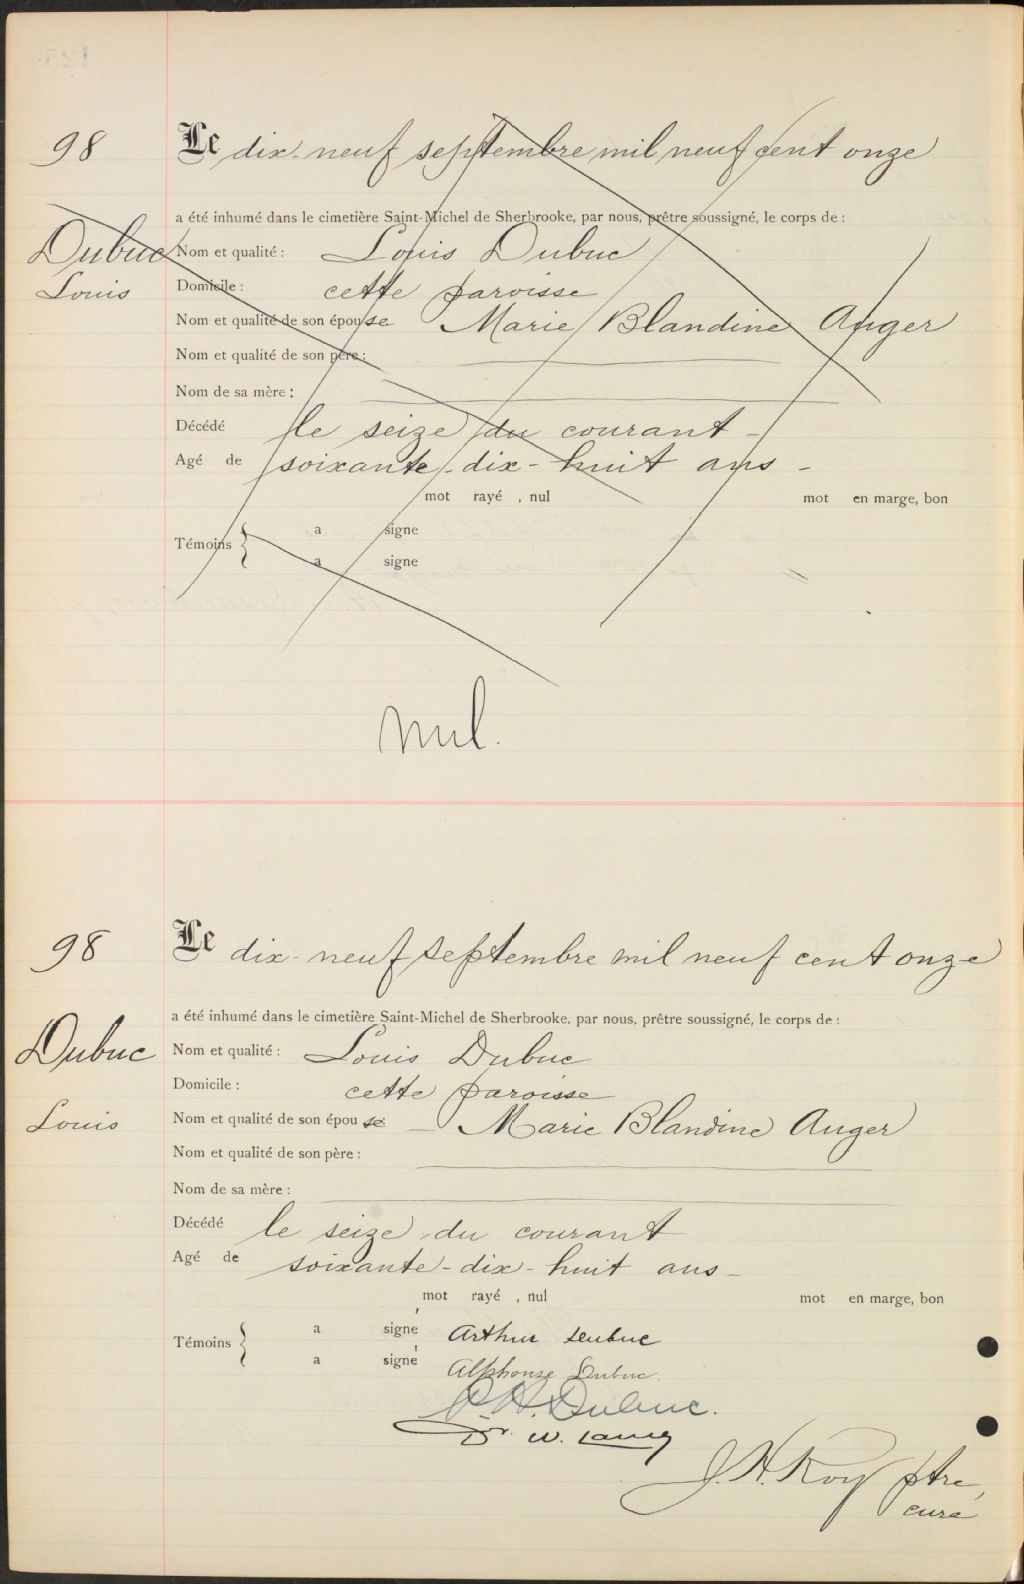 98
Le dix-neuf septembre mil neuf cent onze
a été inhumé dans le cimetière Saint-Michel de Sherbrooke, par nous, prêtre soussigné, le corps de :
Dubuc
Louis
Nom et qualité : Louis Dubuc
Domicile : cette paroisse
Nom et qualité de son épouse Marie Blandine Auger
Nom et qualité de son père :
Nom de sa mère :
Décédé le seize du courant -
Agé de soixante-dix-huit ans -
mot rayé , nul mot en marge, bon
Témoins { a signe
a signe
nul.
98
Le dix-neuf septembre mil neuf cent onze
a été inhumé dans le cimetière Saint-Michel de Sherbrooke, par nous, prêtre soussigné, le corps de :
Dubuc
Louis
Nom et qualité : Louis Dubuc
Domicile : cette paroisse
Nom et qualité de son épouse Marie Blandine Auger
Nom et qualité de son père :
Nom de sa mère :
Décédé le seize du courant
Agé de soixante-dix-huit ans -
mot rayé , nul mot en marge, bon
Témoins { a signé Arthur Dubuc
a signé Alphonse Dubuc.
Dubuc.
Dr. W. Lamy
J. H. Roy ptre,
curé